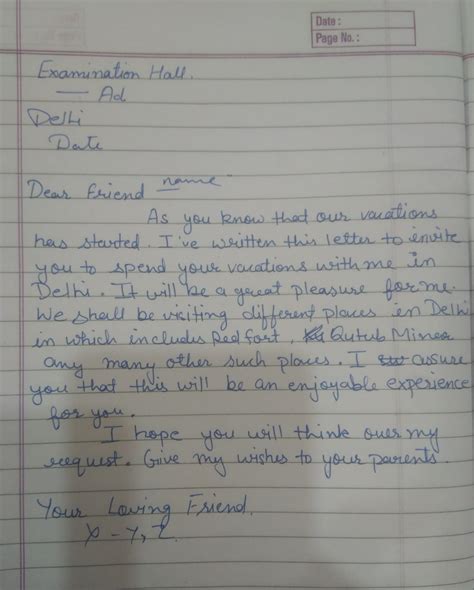 Date :
Page No. :
Examination Hall.
— Ad.
Delhi
Date
Dear Friend name
As you know that our vacations
has started. I've written this letter to invite
you to spend your vacations with me in
Delhi. It will be a great pleasure for me.
We shall be visiting different places in Delhi
in which includes Red fort, Qutub Minea
any many other such places. I assure
you that this will be an enjoyable experience
for you.
I hope you will think over my
request. Give my wishes to your parents.
Your Loving Friend.
X - Y, Z.